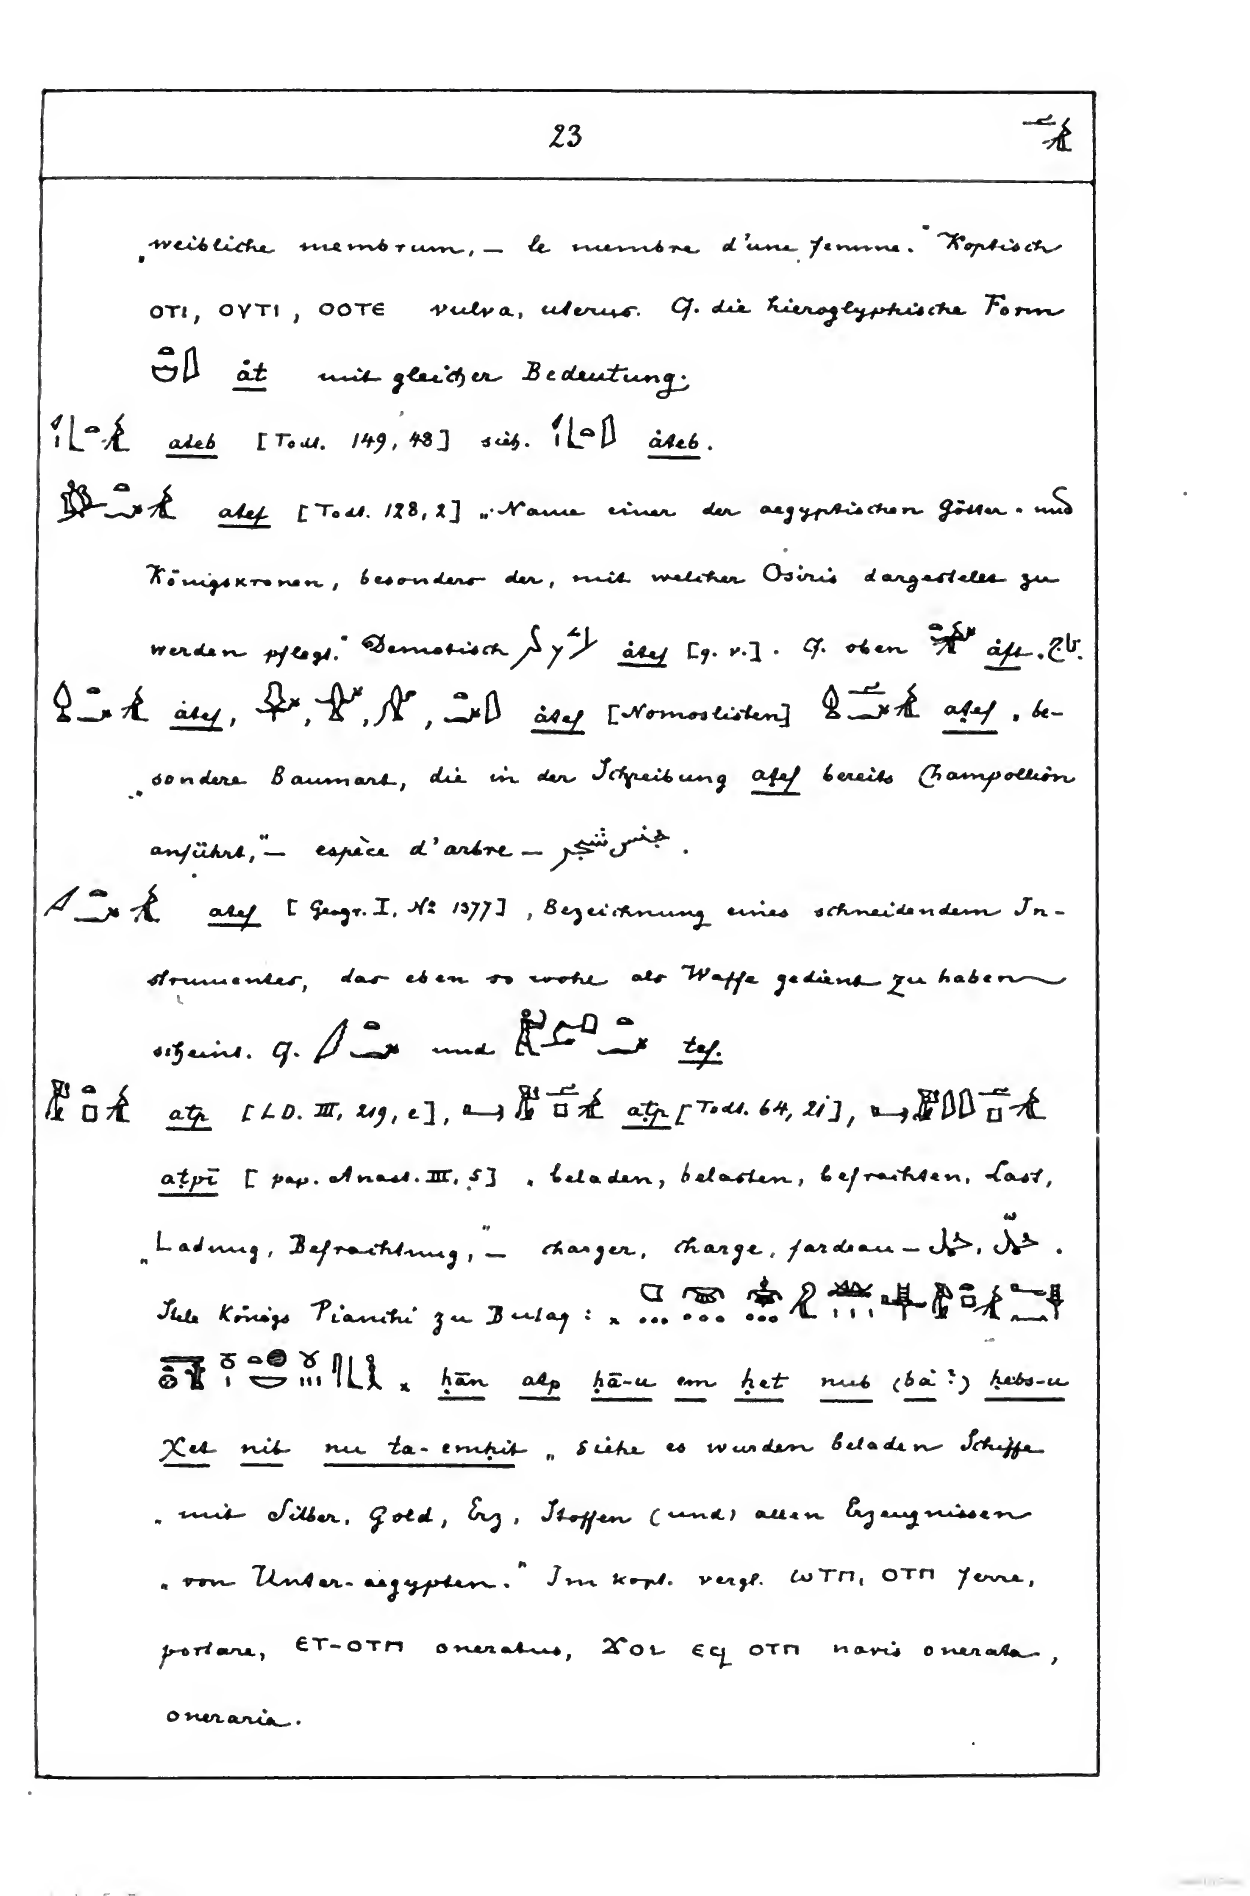 23
„weibliche membrum, — le membre d'une femme." Koptisch
ⲟⲧⲓ, ⲟⲩⲧⲓ, ⲟⲟⲧⲉ vulva, uterus. Cf. die hieroglyphische Form
ȧt mit gleicher Bedeutung.
ateb [Todt. 149, 48] sieh. ȧteb.
atef [Todt. 128, 2] „Name einer der aegyptischen Götter- und
Königskronen, besonders der, mit welcher Osiris dargestellt zu
werden pflegt." Demotisch ȧtef [q. v.]. Cf. oben ȧft.
ȧtef, ȧtef [Nomoslisten] aṭef „be-
„sondere Baumart, die in der Schreibung aṭef bereits Champollion
anführt," — espèce d'arbre — جنس شجر.
atef [Geogr. I, No 1377], Bezeichnung eines schneidendem In-
strumentes, das eben so wohl als Waffe gedient zu haben
scheint. Cf. und tef.
atp [LD. III, 219, e], aṭp [Todt. 64, 21],
aṭpī [pap. Anast. III, 5] „beladen, belasten, befrachten, Last,
„Ladung, Befrachtung," — charger, charge, fardeau —
Stele Königs Pianchi zu Bulaq:
ḥān atp ḥā-u em ḥet nub (ba?) ḥebs-u
χet nib nu ta-emḥit „siehe es wurden beladen Schiffe
„mit Silber, Gold, Erz, Stoffen (und) allen Erzeugnissen
„von Unter-aegypten." Im kopt. vergl. ⲱⲧⲡ, ⲟⲧⲡ ferre,
portare, ⲉⲧ-ⲟⲧⲡ oneratus, ϫⲟⲓ ⲉϥ ⲟⲧⲡ navis onerata,
oneraria.